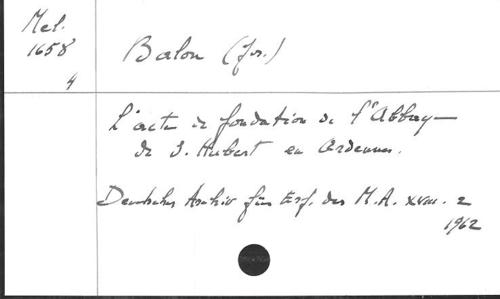 Mel.
1658
4
Balon (Jos.)
L'acte de fondation de l'Abbaye
de S. Hubert en Ardennes.
Deutsches Archiv für Erf. des M.A. XVIII. 2
1962